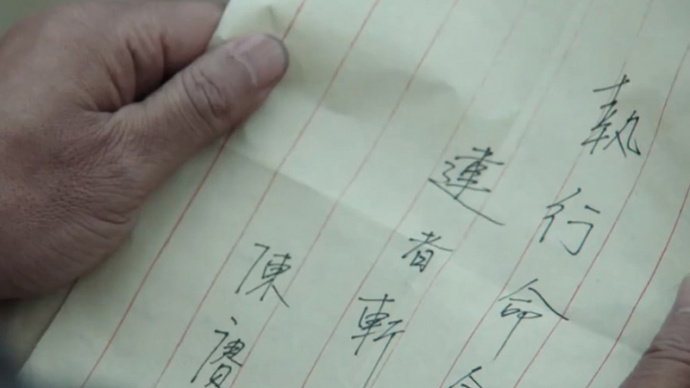 執行命令
違者斬
陳賡